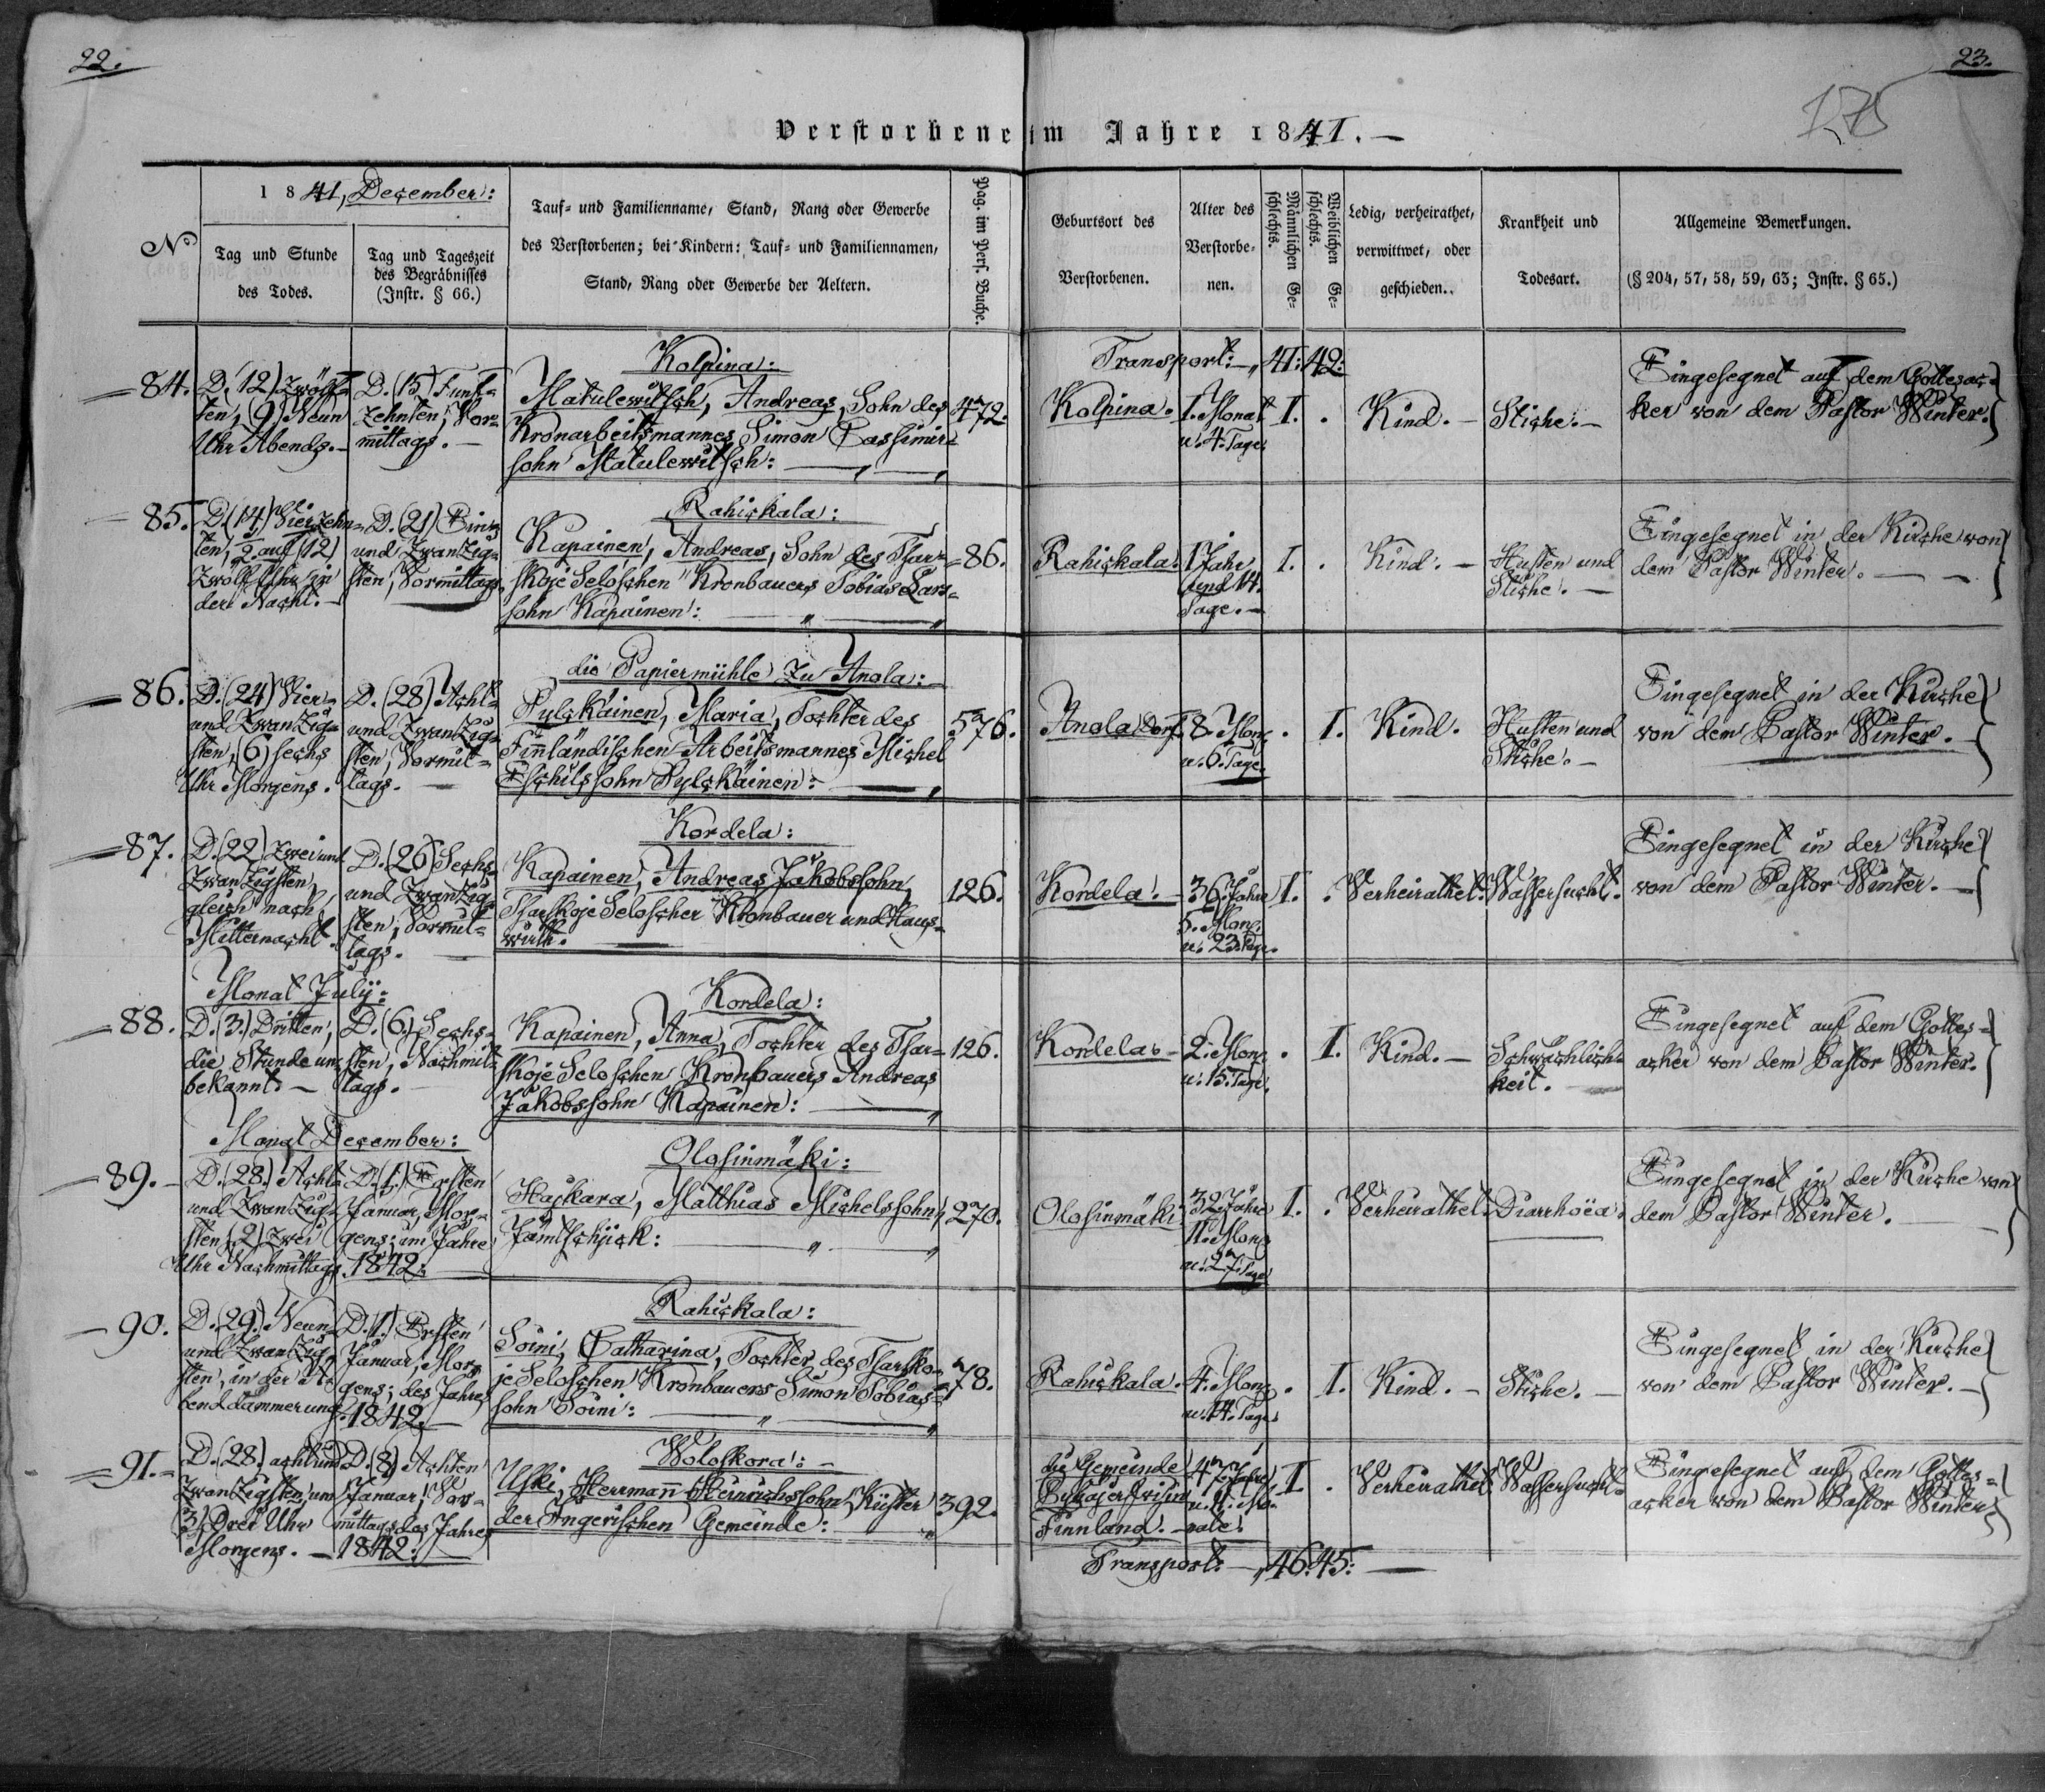 22.
23.
175
Verstorbene im Jahre 1841. –
1841, December:
No
Tag und Stunde
des Todes.
Tag und Tageszeit
des Begräbnisses
(Instr. § 66.)
Tauf- und Familienname, Stand, Rang oder Gewerbe
des Verstorbenen; bei Kindern: Tauf- und Familiennamen,
Stand, Rang oder Gewerbe der Aeltern.
Pag. im Pers. Buche.
Geburtsort des
Verstorbenen.
Alter des
Verstorbe-
nen.
Männlichen Ge-
schlechts.
Weiblichen Ge-
schlechts.
Ledig, verheirathet,
verwittwet, oder
geschieden.
Krankheit und
Todesart.
Allgemeine Bemerkungen.
(§ 204, 57, 58, 59, 63; Instr. § 65.)
Transport: 41: 42:
84.
D. (12) Zwölf-
ten, (9) Neun
Uhr Abends. –
D. (15) Funf-
zehnten, Vor-
mittags. –
Kolpina:
Matulewitsch, Andreas, Sohn des
Kronarbeitsmannes Simon Cassimir-
sohn Matulewitsch:
472.
Kolpina.
1. Monat
u. 4. Tage.
I. .
Kind. –
Stiche. –
Eingesegnet auf dem Gottesac-
ker von dem Pastor Winter.
85.
D. (14) Vierzehn-
ten, ½ auf (12)
Zwölf Uhr in
der Nacht. –
D. (21) Ein-
und Zwanzig-
sten, Vormittags.
Rahickala:
Kapainen, Andreas, Sohn des Tsar-
skoje Seloschen Kronbauers Tobias Lars-
sohn Kapainen:
86.
Rahickala.
1 Jahr
und 14.
Tage. –
I. .
Kind. –
Husten und
Stiche. –
Eingesegnet in der Kirche von
dem Pastor Winter. –
86.
D. (24) Vier-
und Zwanzig-
sten, (6) sechs
Uhr Morgens.
D. (28) Acht-
und Zwanzig-
sten, Vormit-
tags. –
die Papiermühle zu Anola:
Pylckäinen, Maria, Tochter des
Finländischen Arbeitsmannes Michel
Eschilssohn Pylckäinen:
576.
Anola Dorf.
8. Mon.
u. 6. Tage.
. I.
Kind.
Husten und
Stiche. –
Eingesegnet in der Kirche
von dem Pastor Winter. –
87.
D. (22) Zwei und
Zwanzigsten,
gleich nach
Mitternacht.
D. (26) Sechs-
und Zwanzig-
sten, Vormit-
tags. –
Kordela:
Kapainen, Andreas Jakobssohn,
Tsarskoje Seloscher Kronbauer und Haus-
wirth.
126.
Kordela. –
36. Jahre
5. Mon.
u. 23. Tage.
I. .
Verheirathet.
Wassersucht.
Eingesegnet in der Kirche
von dem Pastor Winter. –
Monat Julij:
88.
D. (3.) Dritten,
die Stunde un-
bekannt. –
D. (6.) Sechs-
sten, Nachmit-
tags. –
Kordela:
Kapainen, Anna, Tochter des Tsar-
skoje Seloschen Kronbauers Andreas
Jakobssohn Kapainen:
126.
Kordela. –
2. Mon.
u. 15. Tage.
. I.
Kind. –
Schwächlich-
keit. –
Eingesegnet auf dem Gottes-
acker von dem Pastor Winter.
Monat December:
89.
D. (28.) Acht-
und Zwanzig-
sten (2) Zwei
Uhr Nachmittags
D. (1.) Ersten
Januar, Mor-
gens; im Jahre
1842:
Olosinmäki:
Hackara, Matthias Michelssohn,
Jämtschjick:
270.
Olosinmäki.
32. Jahre
11. Mon.
u. 27. Tage.
I. .
Verheirathet.
Diarrhoëa.
Eingesegnet in der Kirche von
dem Pastor Winter. –
90.
D. (29.) Neun-
und Zwanzig-
sten, in der A-
benddämmerung.
D. (1.) Ersten
Januar, Mor-
gens; des Jahres
1842. –
Rahickala:
Soini, Catharina, Tochter des Tsarsko-
je Seloschen Kronbauers Simon Tobias-
sohn Soini:
78.
Rahickala.
4. Mon.
u. 14. Tage.
. I.
Kind. –
Stiche. –
Eingesegnet in der Kirche
von dem Pastor Winter. –
91.
D. (28.) acht und
Zwanzigsten, um
(3) Drei Uhr
Morgens. –
D. (8) Achten
Januar, Vor-
mittags des Jahres
1842:
Woloskora: –
Uski, Herrman Heinrichssohn, Küster
der Ingerischen Gemeinde:
392.
die Gemeinde
in
Finnland. –
47 Jahre
u. 11. Mo-
nate.
I. .
Verheirathet.
Wassersucht.
Eingesegnet auf dem Gottes-
acker von dem Pastor Winter.
Transport: 46. 45: